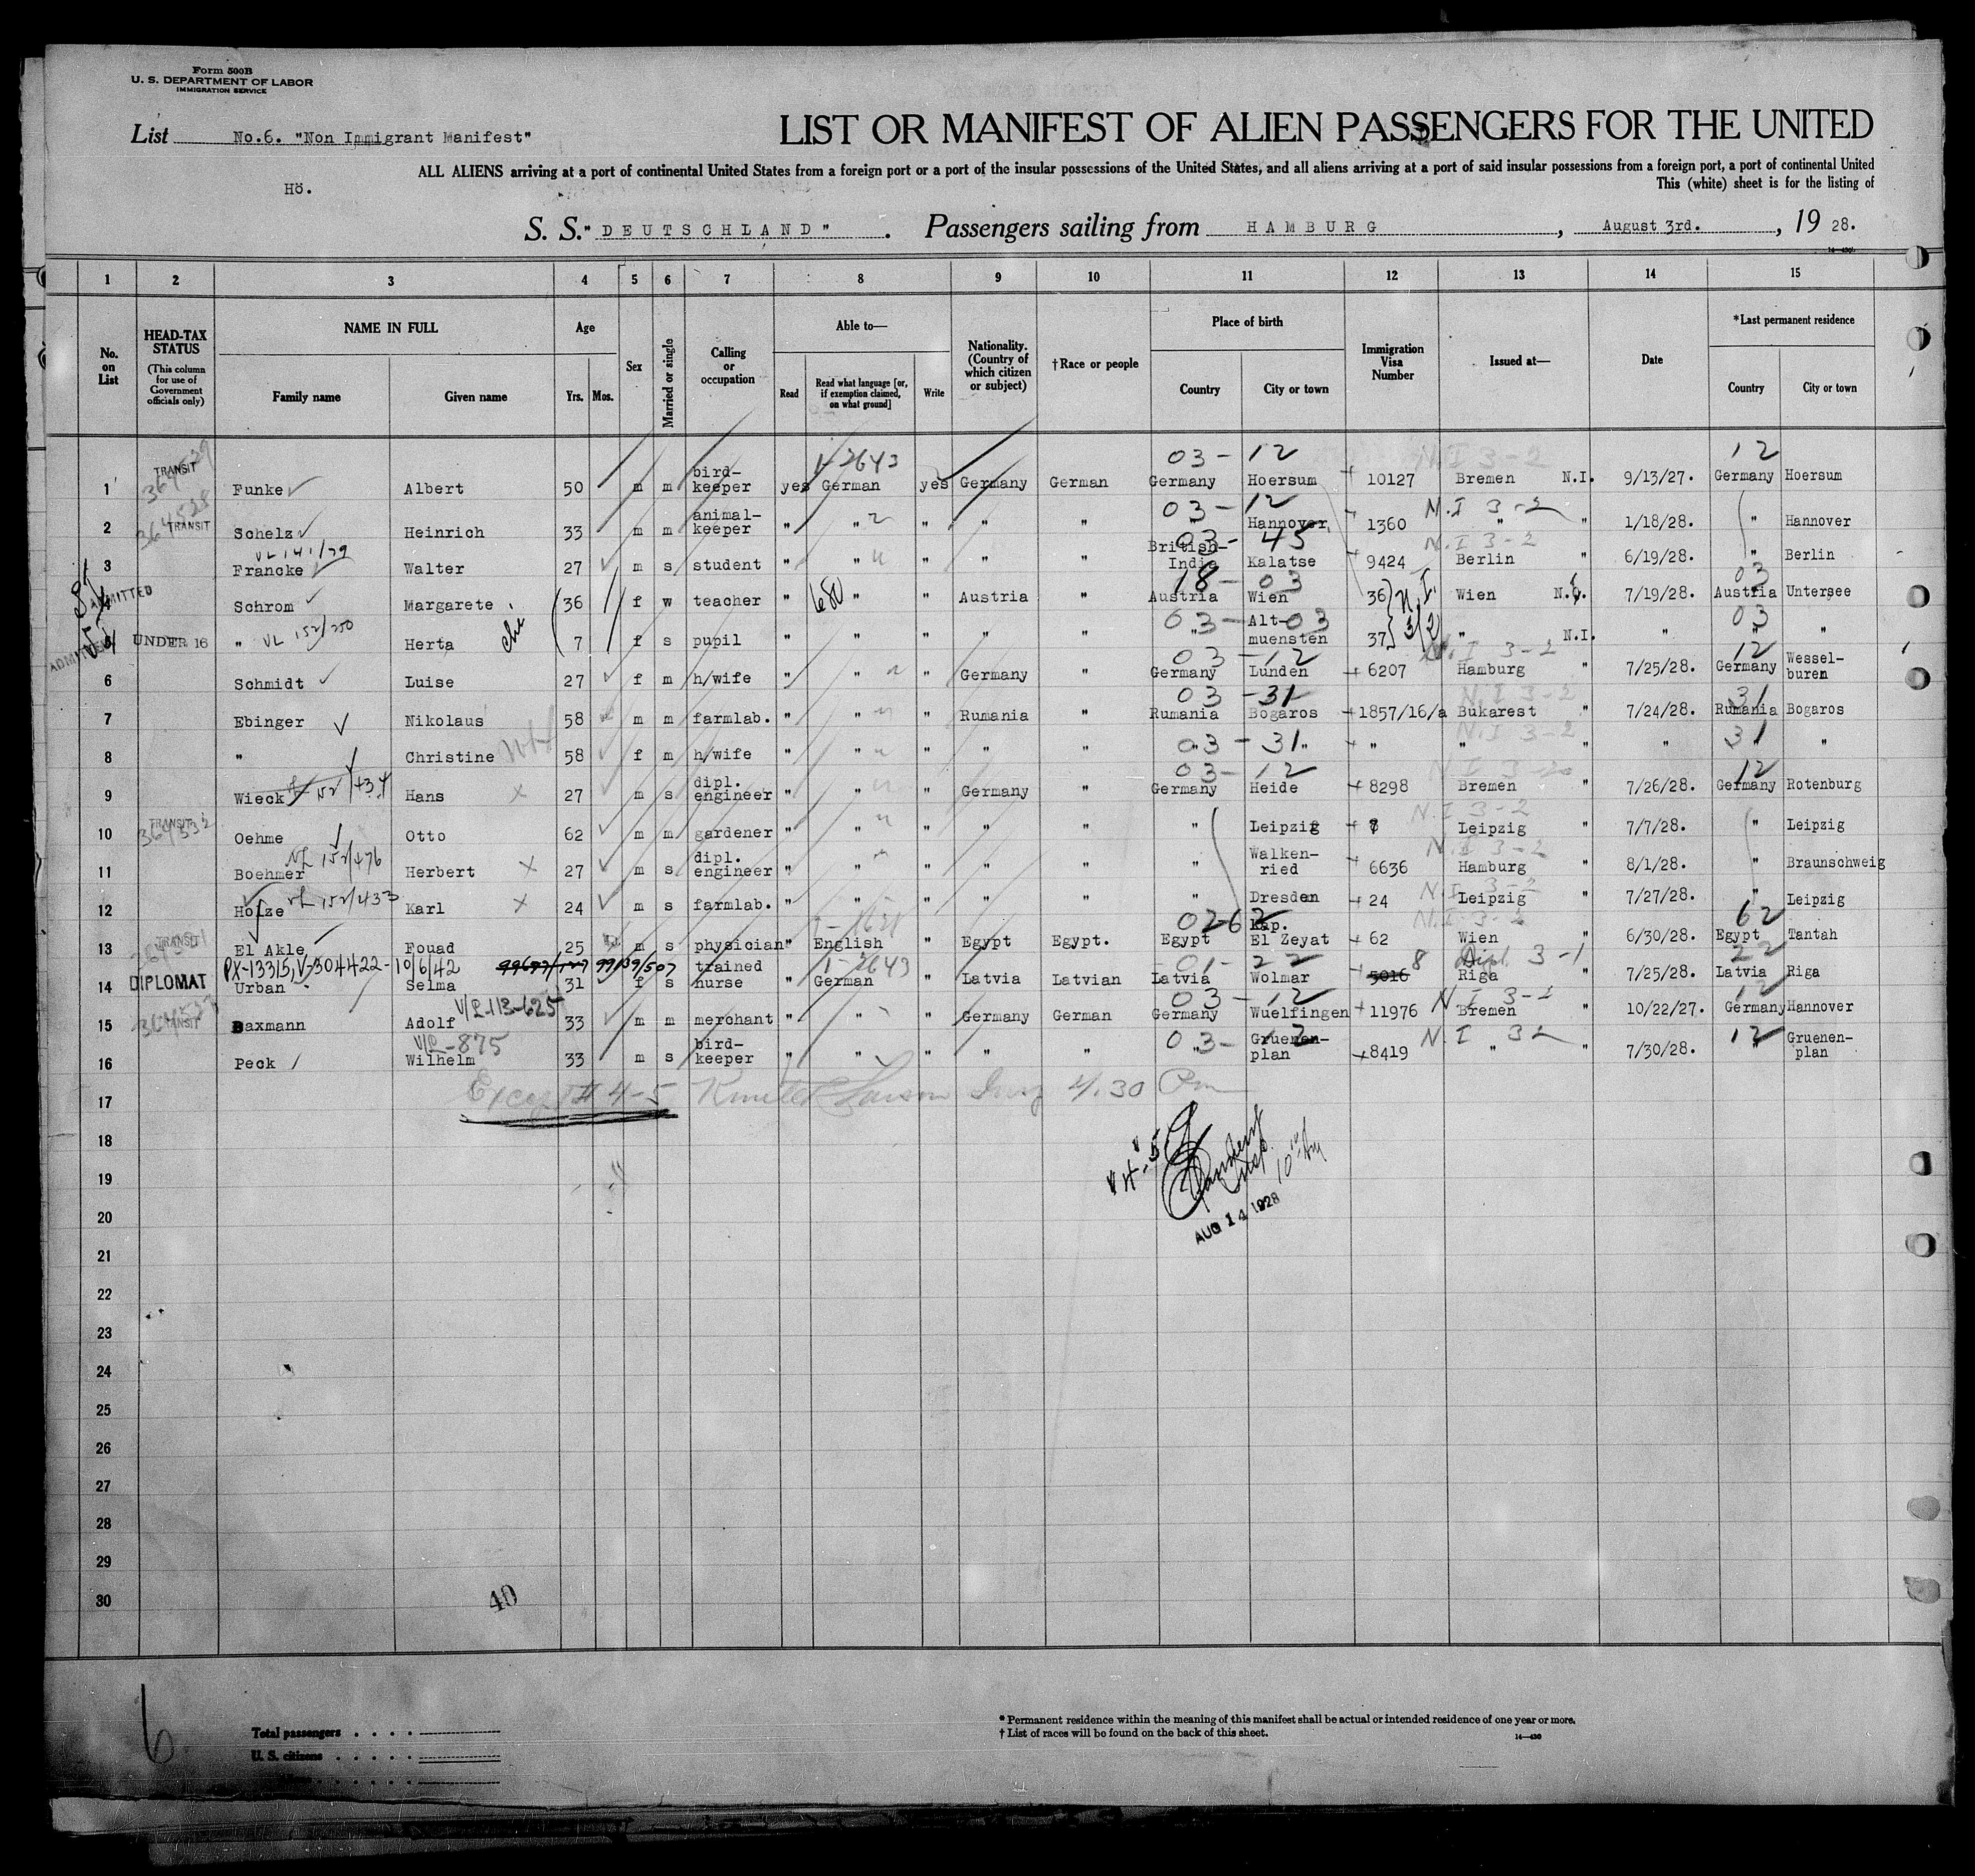 Form 500B
U. S. DEPARTMENT OF LABOR
IMMIGRATION SERVICE
List No.6. "Non Immigrant Manifest"
Hö.
LIST OR MANIFEST OF ALIEN PASSENGERS FOR THE UNITED
ALL ALIENS arriving at a port of continental United States from a foreign port or a port of the insular possessions of the United States, and all aliens arriving at a port of said insular possessions from a foreign port, a port of continental United
This (white) sheet is for the listing of
S. S. "DEUTSCHLAND". Passengers sailing from HAMBURG, August 3rd., 1928.
1 2 3 4 5 6 7 8 9 10 11 12 13 14 15
No. on List
HEAD-TAX STATUS (This column for use of Government officials only)
NAME IN FULL Family name Given name
Age Yrs. Mos.
Sex
Married or single
Calling or occupation
Able to— Read Read what language [or, if exemption claimed, on what ground] Write
Nationality. (Country of which citizen or subject)
†Race or people
Place of birth Country City or town
Immigration Visa Number
Issued at—
Date
*Last permanent residence Country City or town
03 - 12 1-2643 12
1 TRANSIT Funke Albert 50 m m bird-keeper yes German yes Germany German Germany Hoersum 10127 Bremen N.I. 9/13/27. Germany Hoersum
364528 03 - 12 N.I 3-2
2 TRANSIT Schelz Heinrich 33 m m animal-keeper " " " " " " Hannover 1360 " " 1/18/28. " Hannover
VL 141/29 03 - 45 N.I 3-2
3 Francke Walter 27 m s student " " " " " British-India Kalatse 9424 Berlin " 6/19/28. " Berlin
ADMITTED 18 - 03 680 N.I. 3/2 03
4 Schrom Margarete 36 f w teacher " " " Austria " Austria Wien 36 Wien N.I. 7/19/28. Austria Untersee
ADMITTED VL 152/250 03 - 03 03
5 UNDER 16 " Herta 7 f s pupil " " " " " " Alt-muensten 37 " N.I. " " "
03 - 12 N.I 3-2 12
6 Schmidt Luise 27 f m h/wife " " " Germany " Germany Lunden 6207 Hamburg " 7/25/28. Germany Wessel-buren
03 - 31 N.I 3-2 31
7 Ebinger Nikolaus 58 m m farmlab. " " " Rumania " Rumania Bogaros 1857/16/a Bukarest " 7/24/28. Rumania Bogaros
03 - 31 N.I 3-2 31
8 " Christine 58 f m h/wife " " " " " " " " " " " " "
152/434 03 - 12 12
9 Wieck Hans 27 m s dipl. engineer " " " Germany " Germany Heide 8298 Bremen " 7/26/28. Germany Rotenburg
364532 N.I 3-2
10 TRANSIT Oehme Otto 62 m m gardener " " " " " " Leipzig Leipzig " 7/7/28. " Leipzig
VL 152/476 N.I 3-2
11 Boehmer Herbert 27 m s dipl. engineer " " " " " " Walken-ried 6636 Hamburg " 8/1/28. " Braunschweig
VL 152/433 N.I 3-2
12 Holze Karl 24 m s farmlab. " " " " " " Dresden 24 Leipzig " 7/27/28. " Leipzig
02-62 N.I 3-2 62
13 TRANSIT El Akle Fouad 25 m s physician " English " Egypt Egypt. Egypt Kap. El Zeyat 62 Wien " 6/30/28. Egypt Tantah
PX-13315, V-304422-10/6/42 99139/507 1-2643 01 - 22 8 Dipl. 3-1 22
14 DIPLOMAT Urban Selma 31 f s trained nurse " German " Latvia Latvian Latvia Wolmar 5016 Riga " 7/25/28. Latvia Riga
V/L-113-625 03 - 12 N.I 3-2 12
15 TRANSIT Baxmann Adolf 33 m m merchant " " " Germany German Germany Wuelfingen 11976 Bremen " 10/22/27. Germany Hannover
V/L-875 03 - 12 N.I 3-2 12
16 Peck Wilhelm 33 m s bird-keeper " " " " " " Gruenen-plan 8419 " " 7/30/28. " Gruenen-plan
17 Except # 4-5 4.30 Pm
18
19 Insp. 10 Am
20 AUG 14 1928
21
22
23
24
25
26
27
28
29
30
40
6
Total passengers
U. S. citizens
* Permanent residence within the meaning of this manifest shall be actual or intended residence of one year or more.
† List of races will be found on the back of this sheet.
14—430